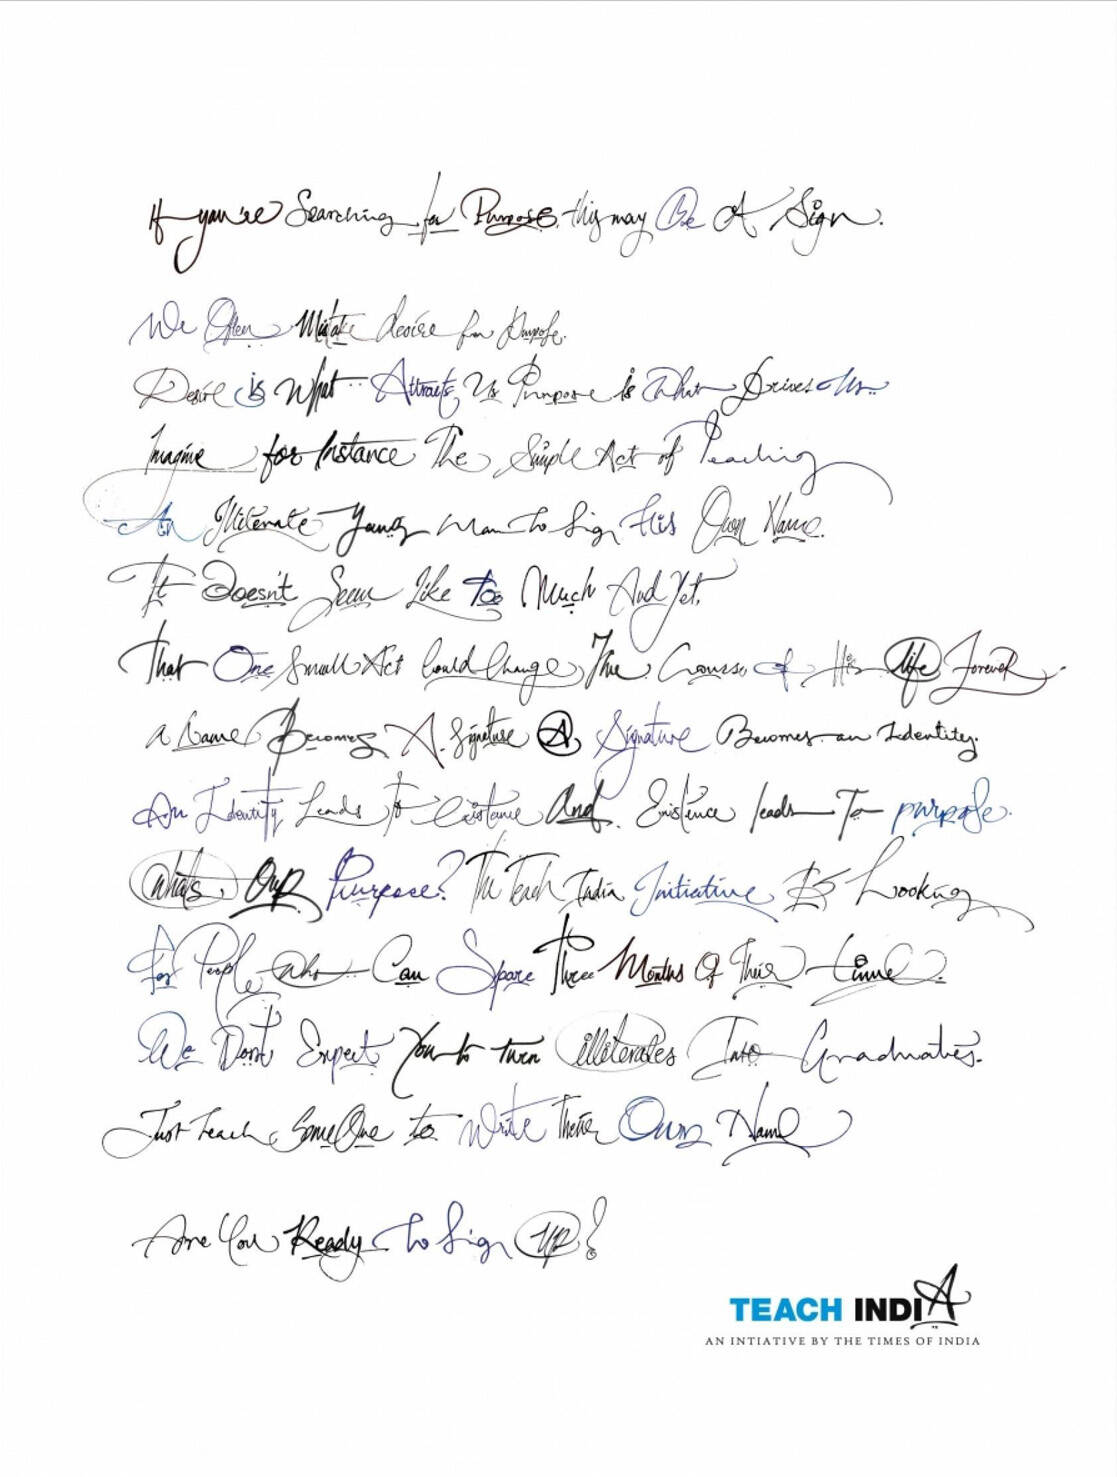 If you're Searching for Purpose, this may Be A Sign.
We Often Mistake desire for Purpose.
Desire is What Attracts Us Purpose is What Drives Us.
Imagine for Instance The Simple Act of Teaching
An Illiterate Young Man To Sign His Own Name.
It Doesn't Seem Like Too Much And Yet,
That One Small Act Could Change The Course of His life Forever
a Name Becomes A Signature A Signature Becomes an Identity.
An Identity Leads To Existence And Existence leads To purpose.
What's Our Purpose? The Teach India Initiative Is Looking
For People Who Can Spare Three Months Of Their time.
We Don't Expect You to turn illiterates Into Graduates.
Just teach SomeOne to Write Their Own Name
Are You Ready To Sign UP?
TEACH INDIA
AN INTIATIVE BY THE TIMES OF INDIA